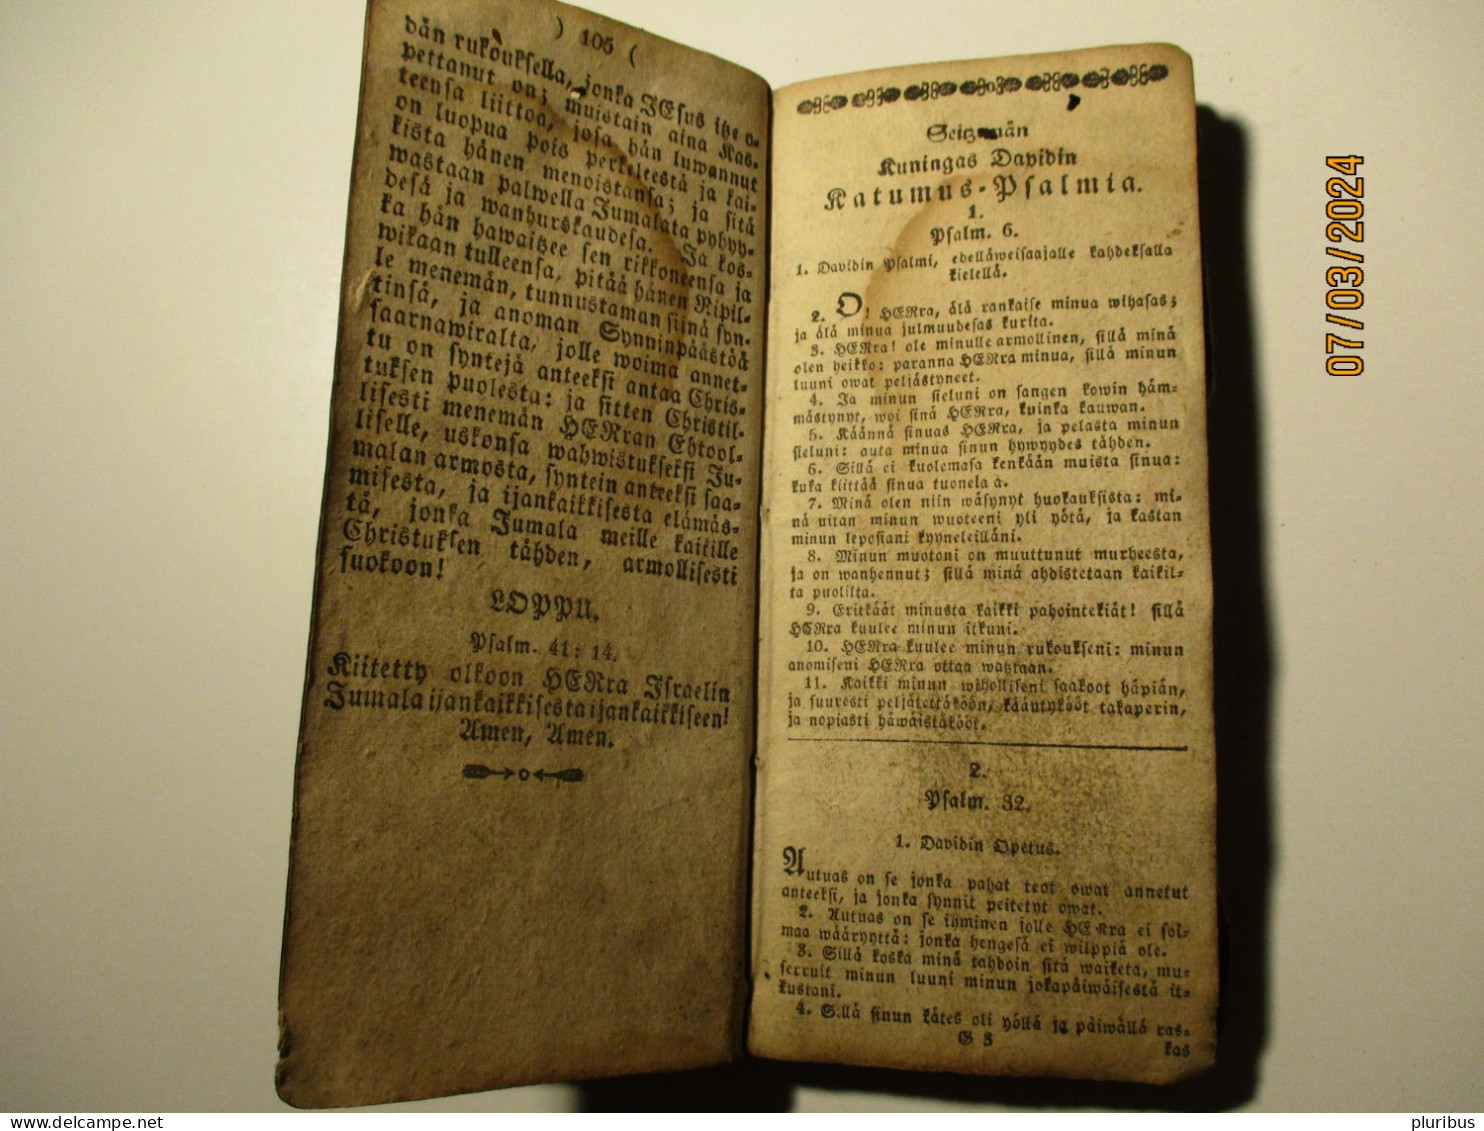 ) 105 (
dän rukouksella, jonka JEsus itze o-
pettanut on; muistain aina Kas-
teensa liittoa, josa hän luwannut
on luopua pois perkeleestä ja kai-
kista hänen menoistansa; ja sitä
wastaan palwella Jumalata pyhyy-
desä ja wanhurskaudesa. Ja kos-
ka hän hawaitzee sen rikkoneensa ja
wikaan tulleensa, pitää hänen Ripil-
le menemän, tunnustaman siinä syn-
tinsä, ja anoman Synninpäästöä
saarnawiralta, jolle woima annet-
tu on syntejä anteeksi antaa Chris-
tuksen puolesta: ja sitten Christil-
lisesti menemän HERran Ehtool-
liselle, uskonsa wahwistukseksi Ju-
malan armosta, syntein anteeksi saa-
misesta, ja ijankaikkisesta elämäs-
tä, jonka Jumala meille kaikille
Christuksen tähden, armollisesti
suokoon!
LOPPU.
Psalm. 41: 14.
Kiitetty olkoon HERra Israelin
Jumala ijankaikkisesta ijankaikkiseen!
Amen, Amen.
Kuningas Davidin
Katumus-Psalmia.
1.
Psalm. 6.
1. Davidin Psalmi, edelläweisaajalle kahdeksalla
kielellä.
2. O! HERra, älä rankaise minua wihasas;
ja älä minua julmuudesas kurita.
3. HERra! ole minulle armollinen, sillä minä
olen heikko: paranna HERra minua, sillä minun
luuni owat peljästyneet.
4. Ja minun sieluni on sangen kowin häm-
mästynyt, woi sinä HERra, kuinka kauwan.
5. Käännä sinuas HERra, ja pelasta minun
sieluni: auta minua sinun hywyydes tähden.
6. Sillä ei kuolemasa kenkään muista sinua:
kuka kiittää sinua tuonelaa.
7. Minä olen niin wäsynyt huokauksista: mi-
nä uitan minun wuoteeni yli yötä, ja kastan
minun leposiani kyyneleilläni.
8. Minun muotoni on muuttunut murheesta,
ja on wanhennut; sillä minä ahdistetaan kaikil-
ta puolilta.
9. Eritkäät minusta kaikki pahointekiät! sillä
HERra kuulee minun itkuni.
10. HERra kuulee minun rukoukseni: minun
anomiseni HERra ottaa wastaan.
11. Kaikki minun wiholliseni saakoot häpiän,
ja suuresti peljätettäköön, kääntykööt takaperin,
ja nopiasti häwäistäkööt.
2.
Psalm. 32.
1. Davidin Opetus.
Autuas on se jonka pahat teot owat annetut
anteeksi, ja jonka synnit peitetyt owat.
2. Autuas on se ihminen jolle HERra ei soi-
maa wääryyttä: jonka hengesä ei wilppiä ole.
3. Sillä koska minä tahdoin sitä waiketa, mu-
serruit minun luuni minun jokapäiwäisestä it-
kustani.
4. Sillä sinun kätes oli yöllä ja päiwällä ras-
G 5
kas
07/03/2024
pluribus